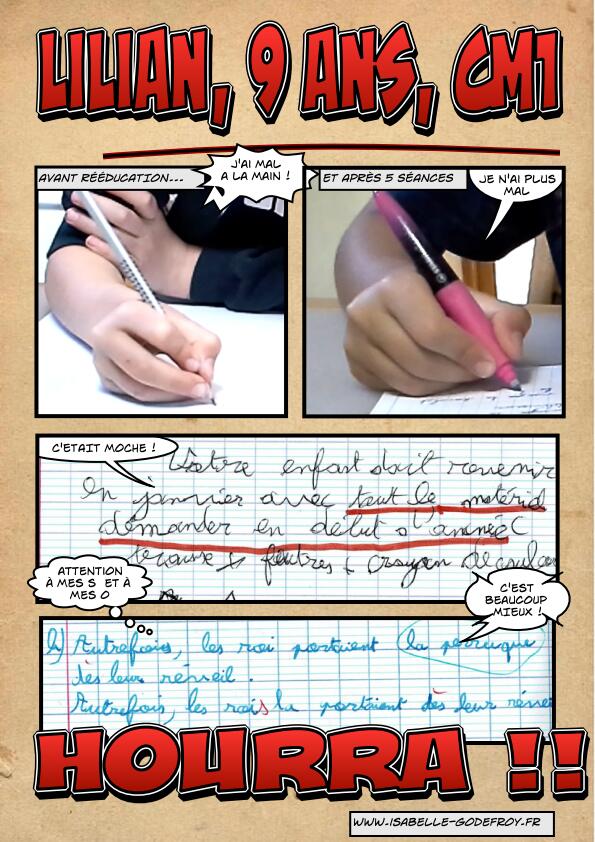 LILIAN, 9 ANS, CM1
AVANT RÉÉDUCATION...
J'AI MAL
A LA MAIN !
ET APRÈS 5 SÉANCES
JE N'AI PLUS
MAL
C'ETAIT MOCHE !
Votre enfant doit revenir
en janvier avec tout le matériel
demander en début d'année
trousse + feutres + crayon de couleur
ATTENTION
À MES S ET À
MES O
C'EST
BEAUCOUP
MIEUX !
b) Autrefois, les roi portaient la perruque
dès leur réveil.
Autrefois, les rois la portaient dès leur réveil
HOURRA !!
WWW.ISABELLE-GODEFROY.FR